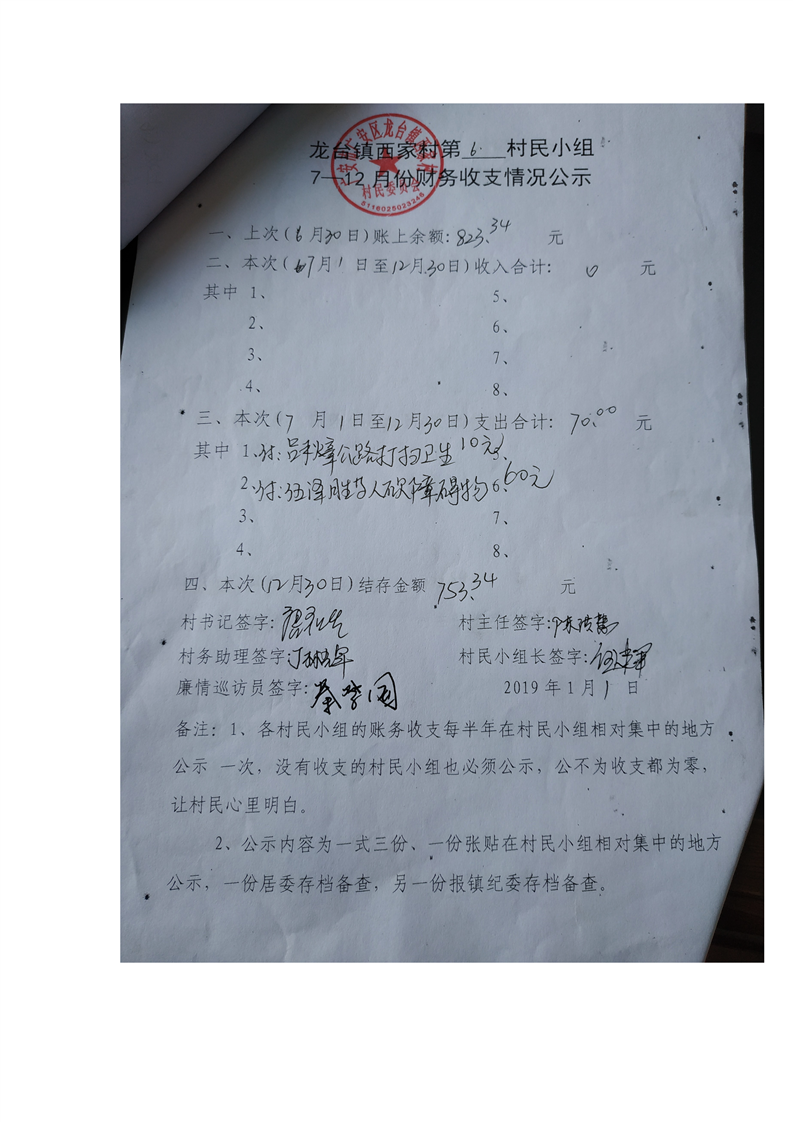 龙台镇西家村第6村民小组
7—12月份财务收支情况公示
村民委员会
5118025023246
一、上次(6月30日)账上余额:823.34 元
二、本次(7月1日至12月30日)收入合计: 0 元
其中 1、 5、
2、 6、
3、 7、
4、 8、
三、本次(7月1日至12月30日)支出合计: 70.00 元
其中 1、付:吕 公路打扫卫生10元
2、付:伍泽胜等人砍障碍物 6、60元
3、 7、
4、 8、
四、本次(12月30日)结存金额 753.34 元
村书记签字: 村主任签字:
村务助理签字: 村民小组长签字:
廉情巡访员签字: 2019年1月1日
备注:1、各村民小组的账务收支每半年在村民小组相对集中的地方
公示 一次,没有收支的村民小组也必须公示,公不为收支都为零,
让村民心里明白。
2、公示内容为一式三份、一份张贴在村民小组相对集中的地方
公示,一份居委存档备查,另一份报镇纪委存档备查。